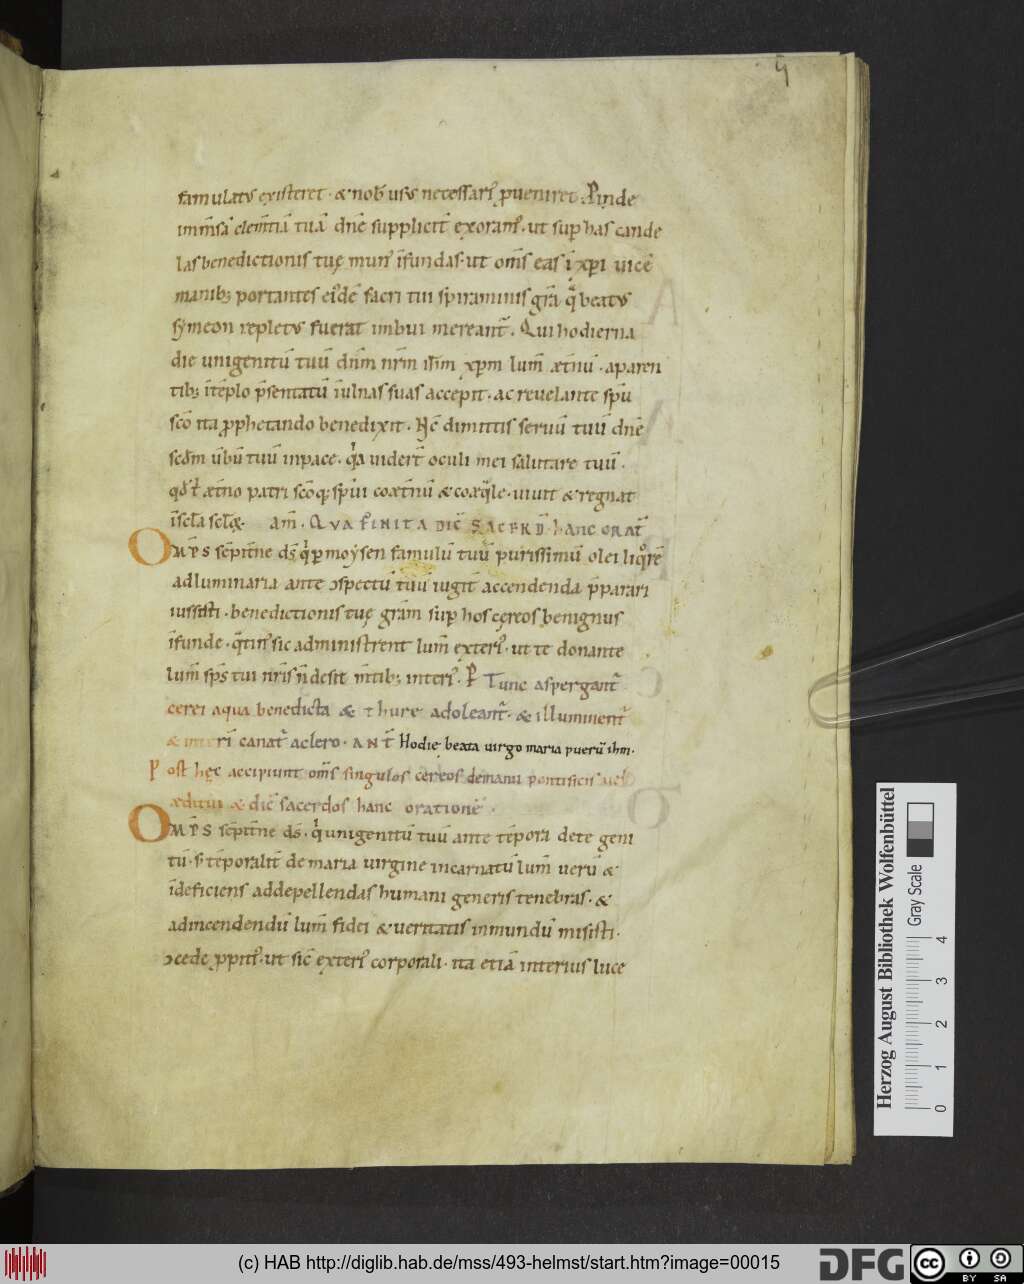 4
famulatꝰ existeret · & nob̄ usꝰ necessariꝰ ꝓueniret. Proinde
imm̄sā clem̄tiā tuā dn̄e supplicit̄ exoramꝰ · ut sup̄ has cande
las benedictionis tuę munꝰ īfundas · ut om̄s eas ī xp̄i uicē
manib; portantes eiꝰdē sacri tui spiraminis gr̄a q̄ beatꝰ
symeon repletꝰ fuerat imbui mereant̄. Qui hodierna
die unigenitū tuū dn̄m nr̄m ih̄m xp̄m lum̄ æt̄nū · aparen
tib; ītēplo p̄sentatū īulnas suas accepit · ac reuelante sp̄u
sc̄o ita ꝓphetando benedixit. Nc̄ dimittis seruū tuū dn̄e
scd̄m ūbū tuū inpace · q̄a uidert̄ oculi mei salutare tuū.
æt̄no patri sc̄oq; sp̄ui coæt̄nū & coæq̄le · uiuit & regnat
īsc̄la sc̄lo℞. am̄. QVA FINITA DIC̄ SACERD̄ hanc orat̄
OMP̄S sēpit̄ne ds̄ q̄ p̄ moysen famulū tuū purissimū olei liq̊rē
adluminaria ante ↄspectū tuū iugit̄ accendenda p̄parari
iussisti · benedictionis tuę gr̄am sup̄ hos cereos benignus
īfunde · q̄tinꝰ sic administrent lum̄ exteriꝰ · ut te donante
lum̄ sp̄s tui nr̄is n̄ desit m̄tib; interiꝰ. P̄ Tunc aspergant̄
cerei aqua benedicta & thure adoleant̄ · & illuminent̄
& interī canat̄ aclero · ANT̄ Hodie beata uirgo maria puerū ih̄m.
Post hęc accipiunt om̄s singulos cereos demanu pontificis uel
æditui & dic̄ sacerdos hanc orationē.
OMP̄S sēpit̄ne ds̄ · q̄ unigenitū tuū ante tēpora dete geni
tū · s; tēporalit̄ de maria uirgine incarnatū lum̄ uerū &
īdeficiens addepellendas humani generis tenebras · &
adincendendū lum̄ fidei & ueritatis inmundū misisti ·
ↄcede ꝓpitiꝰ · ut sic̄ exteriꝰ corporali · ita etiā interius luce
Herzog August Bibliothek Wolfenbüttel
Gray Scale
0 1 2 3 4
(c) HAB http://diglib.hab.de/mss/493-helmst/start.htm?image=00015
DFG
cc BY SA